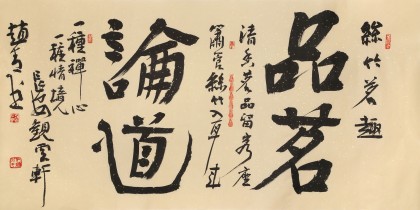 絲竹茗趣
品茗
清香茗品留客座
簫管絲竹入耳來
論道
一種禪心
一種情境
長安觀雲軒